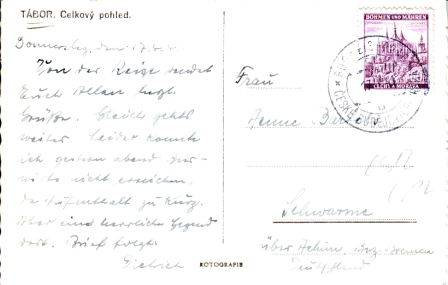 TÁBOR. Celkový pohled.
Donnerstag, den 17.4.
Von der Reise sendet
Euch Allen herzl.
Grüße. Gleich gehts
weiter. Leider konnte
ich gestern abend
nicht erreichen,
Aufenthalt zu kurz.
Aber eine herrliche Gegend
dort. Brief folgt.
Dietrich
ROTOGRAFIE
BÖHMEN UND MÄHREN
ČECHY A MORAVA
Frau
Schwarme
über Achim, Bez. Bremen
Deutschland